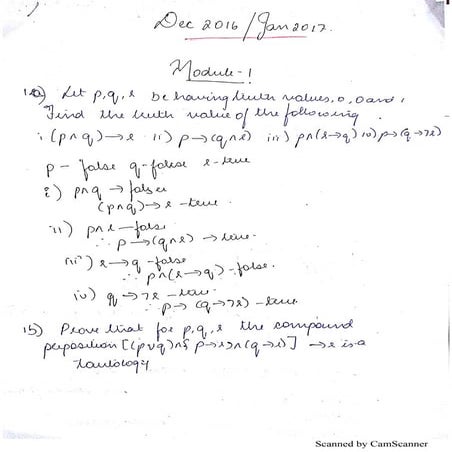 Dec 2016/Jan 2017.
Module-1
1a) Let p, q, r be having truth values, 0, 0 and 1
Find the truth value of the following.
i (p∧q)→r ii) p→(q∧r) iii) p∧(r→q) iv) p→(q→¬r)
p - false q-false r-true
i) p∧q → false
(p∧q)→r - true.
ii) p∧r - false
∴ p→(q∧r) → true.
iii) r→q -false
∴ p∧(r→q) -false.
iv) q→¬r - true.
∴ p→ (q→¬r) -true.
1b) Prove that for p, q, r the compound
preposition [(p∨q)∧{ p→r}∧(q→r)] →r is a
tautology
Scanned by CamScanner